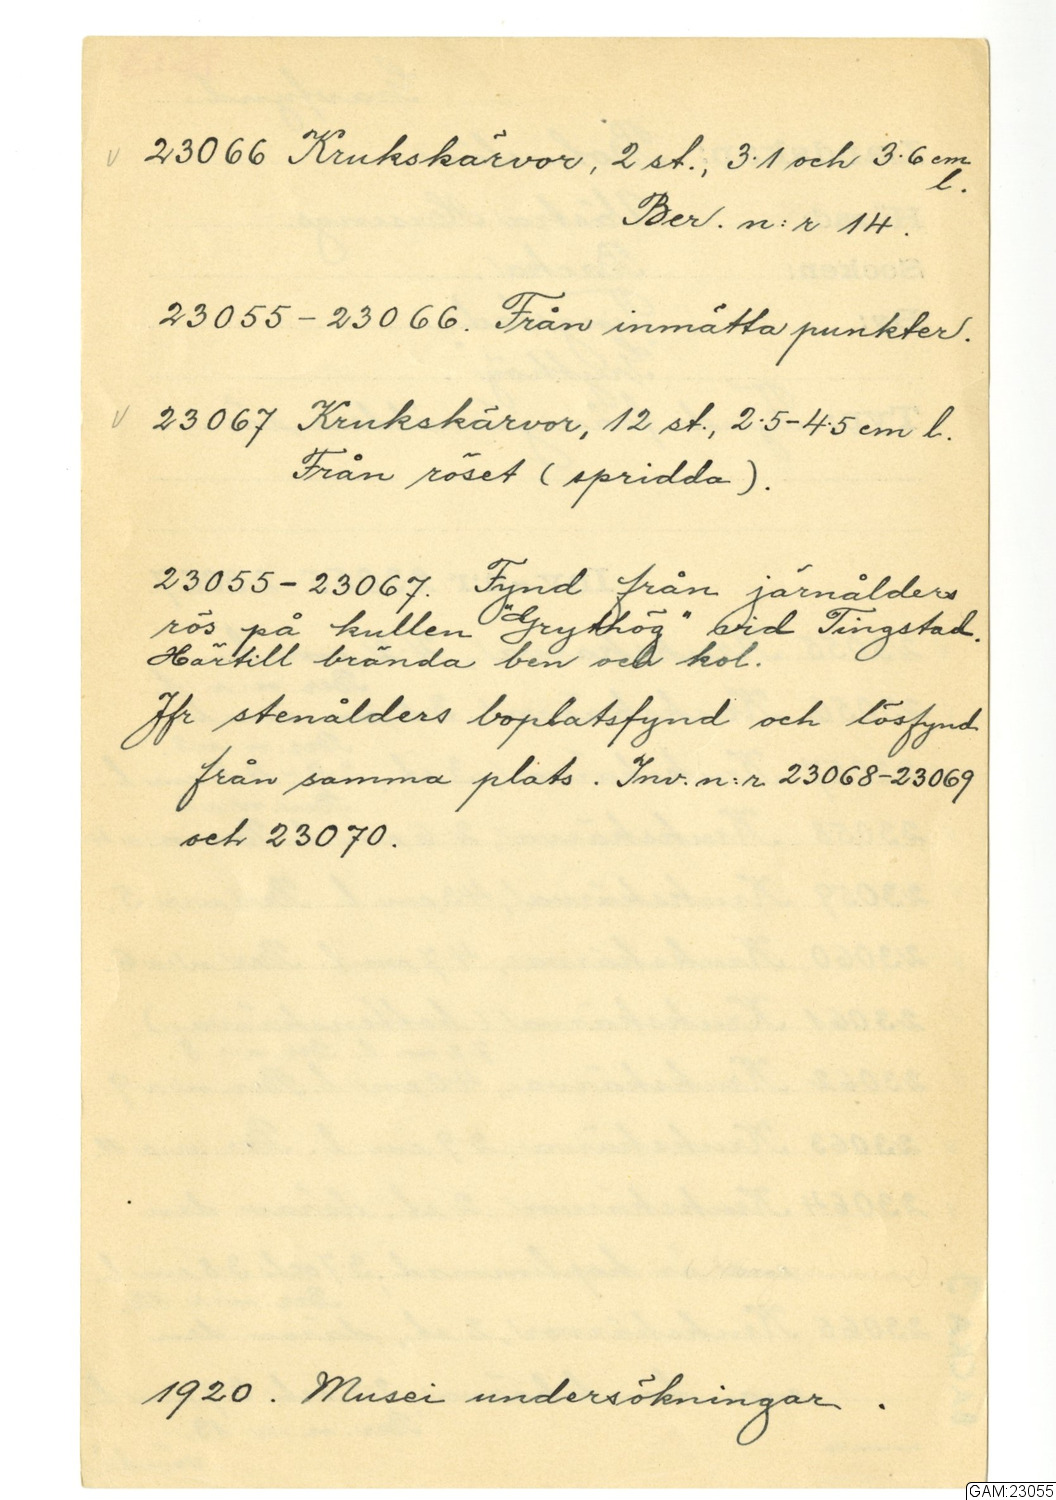 v 23066 Krukskärvor, 2 st., 3.1 och 3.6 cm
l.
Ber. n:r 14.
23055-23066. Från inmätta punkter.
v 23067 Krukskärvor, 12 st., 2.5-4.5 cm l.
Från röset (spridda).
23055-23067. Fynd från järnålders
rös på kullen "Grythög" vid Tingstad.
Härtill brända ben och kol.
Jfr stenålders boplatsfynd och lösfynd
från samma plats. Inv. n:r 23068-23069
och 23070.
1920. Musei undersökningar.
GAM:23055